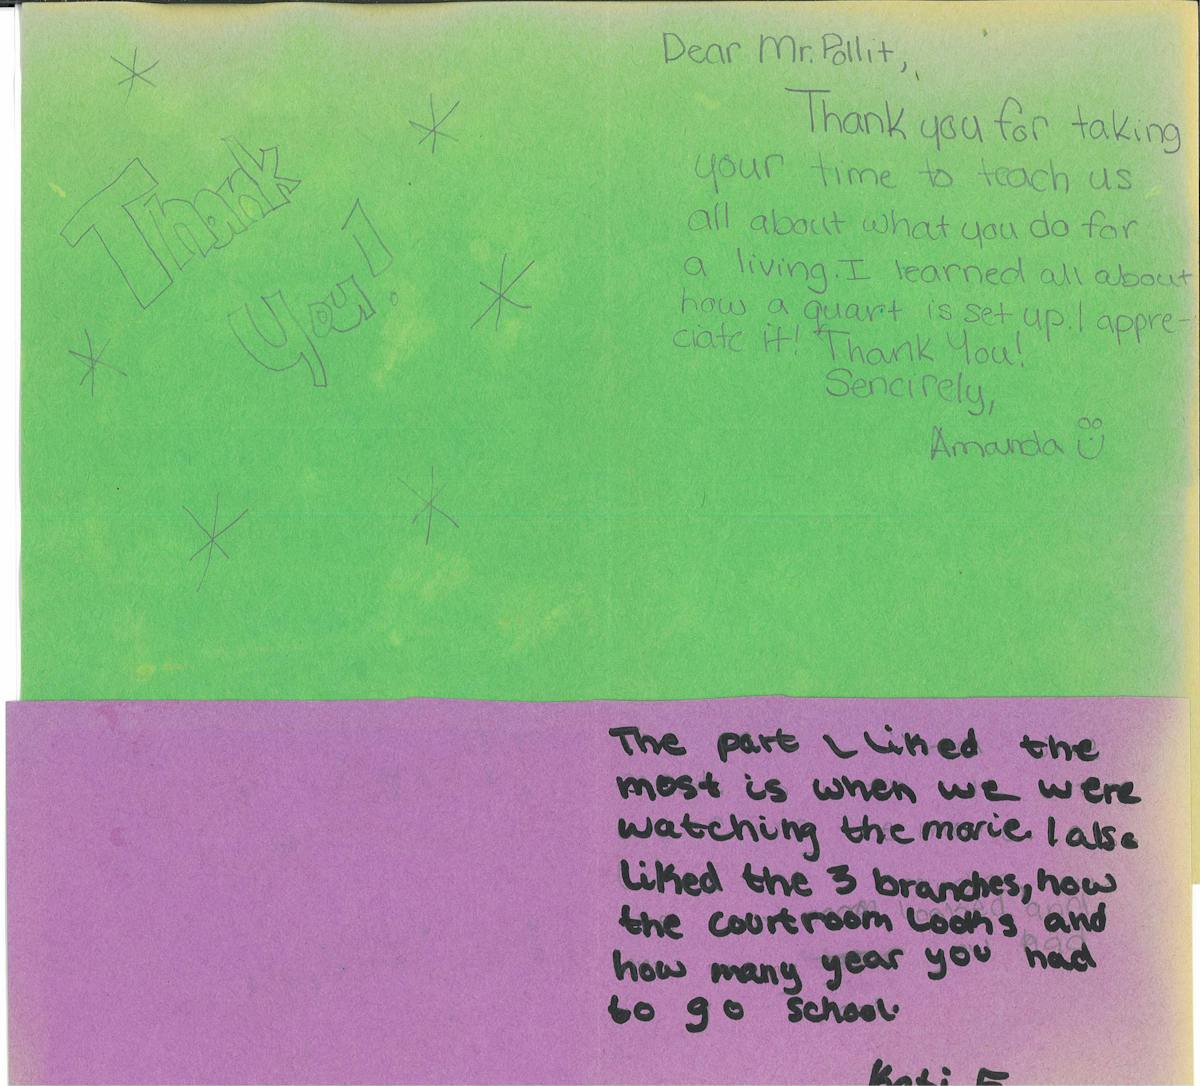 Thank
You!
Dear Mr. Pollit,
Thank you for taking
your time to teach us
all about what you do for
a living. I learned all about
how a quart is set up. I appre-
ciate it! Thank You!
Sencirely,
Amanda
The part I liked the
most is when we were
watching the movie. I also
liked the 3 branches, how
the courtroom looks and
how many year you had
to go school.